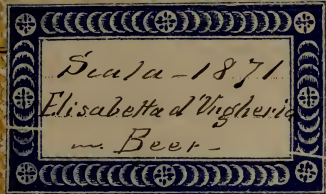 Scala - 1871
Elisabetta d'Ungheria
m. Beer -